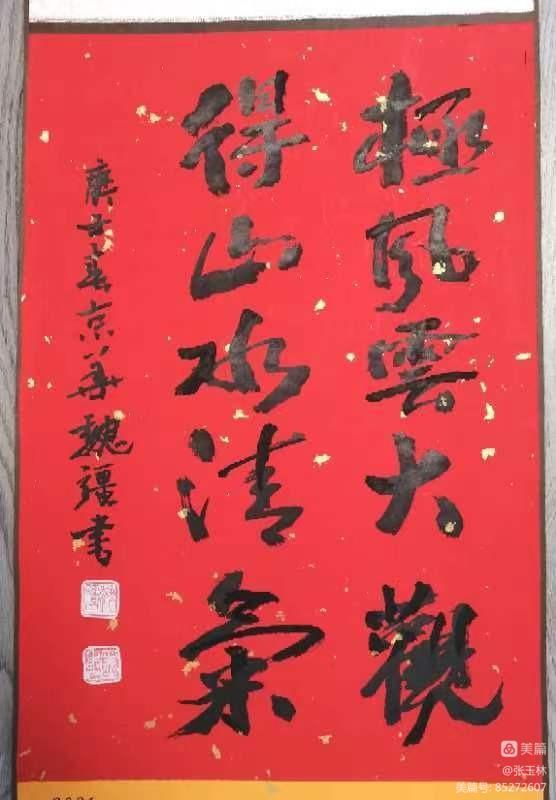 極風雲大觀
得山水清氣
春京華魏疆書
美篇
@张玉林
美篇号: 85272607